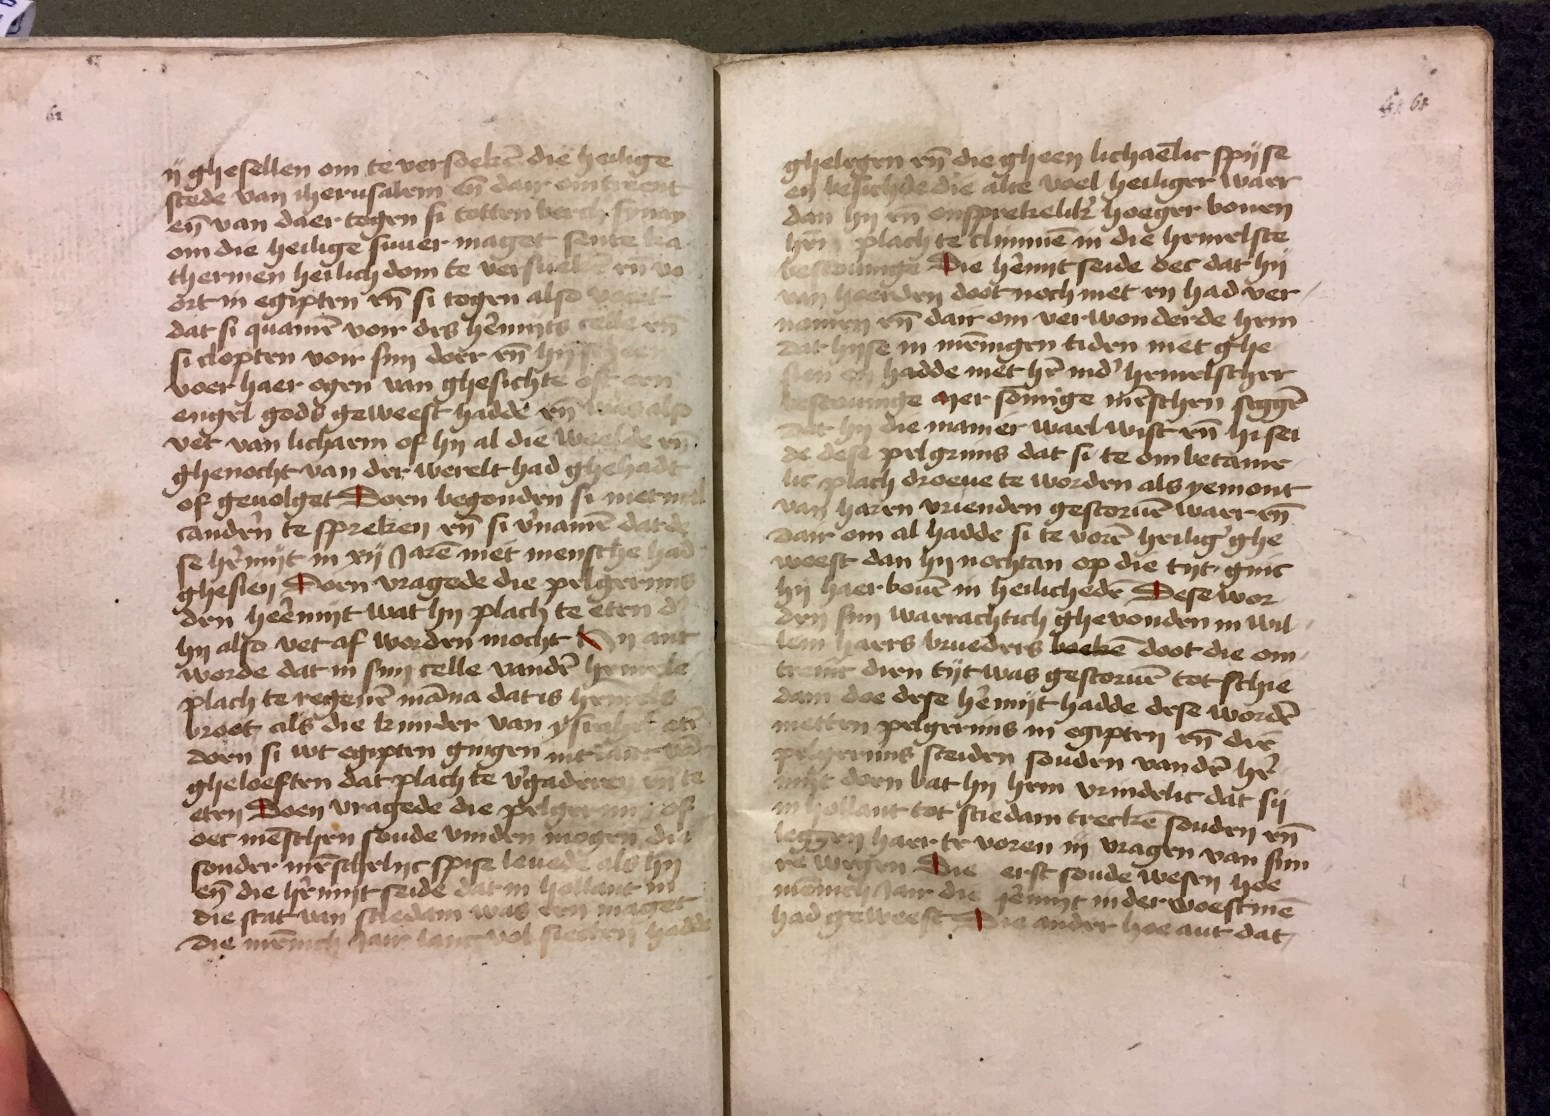 62
ij ghesellen om te versoekē die heilige
stede van iherusalem eñ dair omtrent
eñ van daer togen si totten berch synay
om die heilige suuer maget sente ka
therinen heilichdom te versuekē eñ vo
ort in egipten eñ si togen also voert
dat si quamē voir des hēmijts celle eñ
si clopten voir sijn doer eñ hij scheen
voer haer ogen van ghesichte oft een
engel gods geweest hadde eñ was also
vet van lichaem of hij al die weelde eñ
ghenocht van der werelt had ghehadt
of geuolget Doen begonden si met mal
canderen te spreken eñ si v'namē dat de
se hēmijt in xij Jarē niet mensche had
ghesien Doen vragede die pelgerims
den heēmijt wat hij plach te eten d
hij also vet af worden mocht Hij ant
worde dat in sijn celle vandē hemele
plach te regenē māna dat is hemels
broot als die kinder van ysrahel etē
doen si wt egipten gingen int lant van
gheloeften dat plach te v'gaderen eñ te
eten Doen vragede die pelgerims of
oec mēschen soude vinden mogen die
sonder mēschelijc spise leuede als hij
eñ die hēmijt seide dat in hollant in
die stat van sciedam was een maget
die mēnich Jair lanc vol siecten hadde
61
ghelegen eñ die gheen lichaēlic spijse
en besichde die alte voel heiliger waer
dan hij eñ onsprekelikē hoeger bouen
hem plach te climmē in die hemelsce
bescouinge Die hēmijt seide oec dat hij
van hoerden doot noch niet en had ver
nomen eñ dair om verwonderde hem
dat hijse in mēnigen tiden niet ghe
sien en hadde met hē ind' hemelscher
bescouinge Mer sōmige mēschen seggē
dat hij die manier wael wist eñ hi sei
de dese pelgrims dat si te ombetame
lic plach droeue te worden als yemont
van haren vrienden gestoruē waer eñ
dair om al hadde si te vorē heilig' ghe
weest dan hij nochtan op die tijt ginc
hij haer bouē in heilichedē Dese wor
den sijn waerachtich ghevonden in wil
lem haers brueders doot die om
trent dien tijt was gestoruē tot schie
dam doe dese hēmijt hadde dese wordē
metten pelgerims in egipten eñ die
pelgerims sceiden souden vandē hē
mijt doen bat hij hem vrindelic dat sij
in hollant tot sciedam treckē souden eñ
leggen haer te voren iij vragen van sijn
re wegen Die erst soude wesen hoe
mēnich Jair die hēmijt in der woestinē
had geweest Die ander hoe aut dat